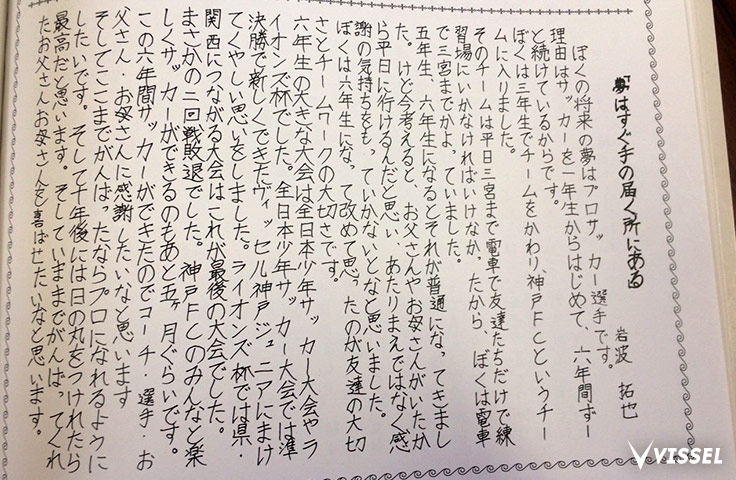 「夢はすぐ手の届く所にある」
岩波 拓也
ぼくの将来の夢はプロサッカー選手です。
理由はサッカーを一年生からはじめて、六年間ずー
と続けているからです。
ぼくは三年生でチームをかわり、神戸FCというチー
ムに入りました。
そのチームは平日三宮まで電車で友達たちだけで練
習場にいかなければいけなかったから、ぼくは電車
で三宮までかよっていました。
五年生、六年生になるとそれが普通になってきまし
た。けど今考えると、お父さんやお母さんがいたか
ら平日に行けるんだと思い、あたりまえではなく感
謝の気持ちをもっていかないとなと思いました。
ぼくは六年生になって改めて思ったのが友達の大切
さとチームワークの大切さです。
六年生の大きな大会は全日本少年サッカー大会やラ
イオンズ杯でした。全日本少年サッカー大会では準
決勝で新しくできたヴィッセル神戸ジュニアにまけ
てくやしい思いをしました。ライオンズ杯では県・
関西につながる大会はこれが最後の大会でした。
まさかの二回戦敗退でした。神戸FCのみんなと楽
しくサッカーができるのもあと五ヶ月ぐらいです。
この六年間サッカーができたのでコーチ・選手・お
父さん・お母さんに感謝したいなと思います
そしてここまでがんばったならプロになれるように
したいです。そして十年後には日の丸をつけれたら
最高だと思います。そしていままでがんばってくれ
たお父さんお母さんを喜ばせたいなと思います。
VISSEL